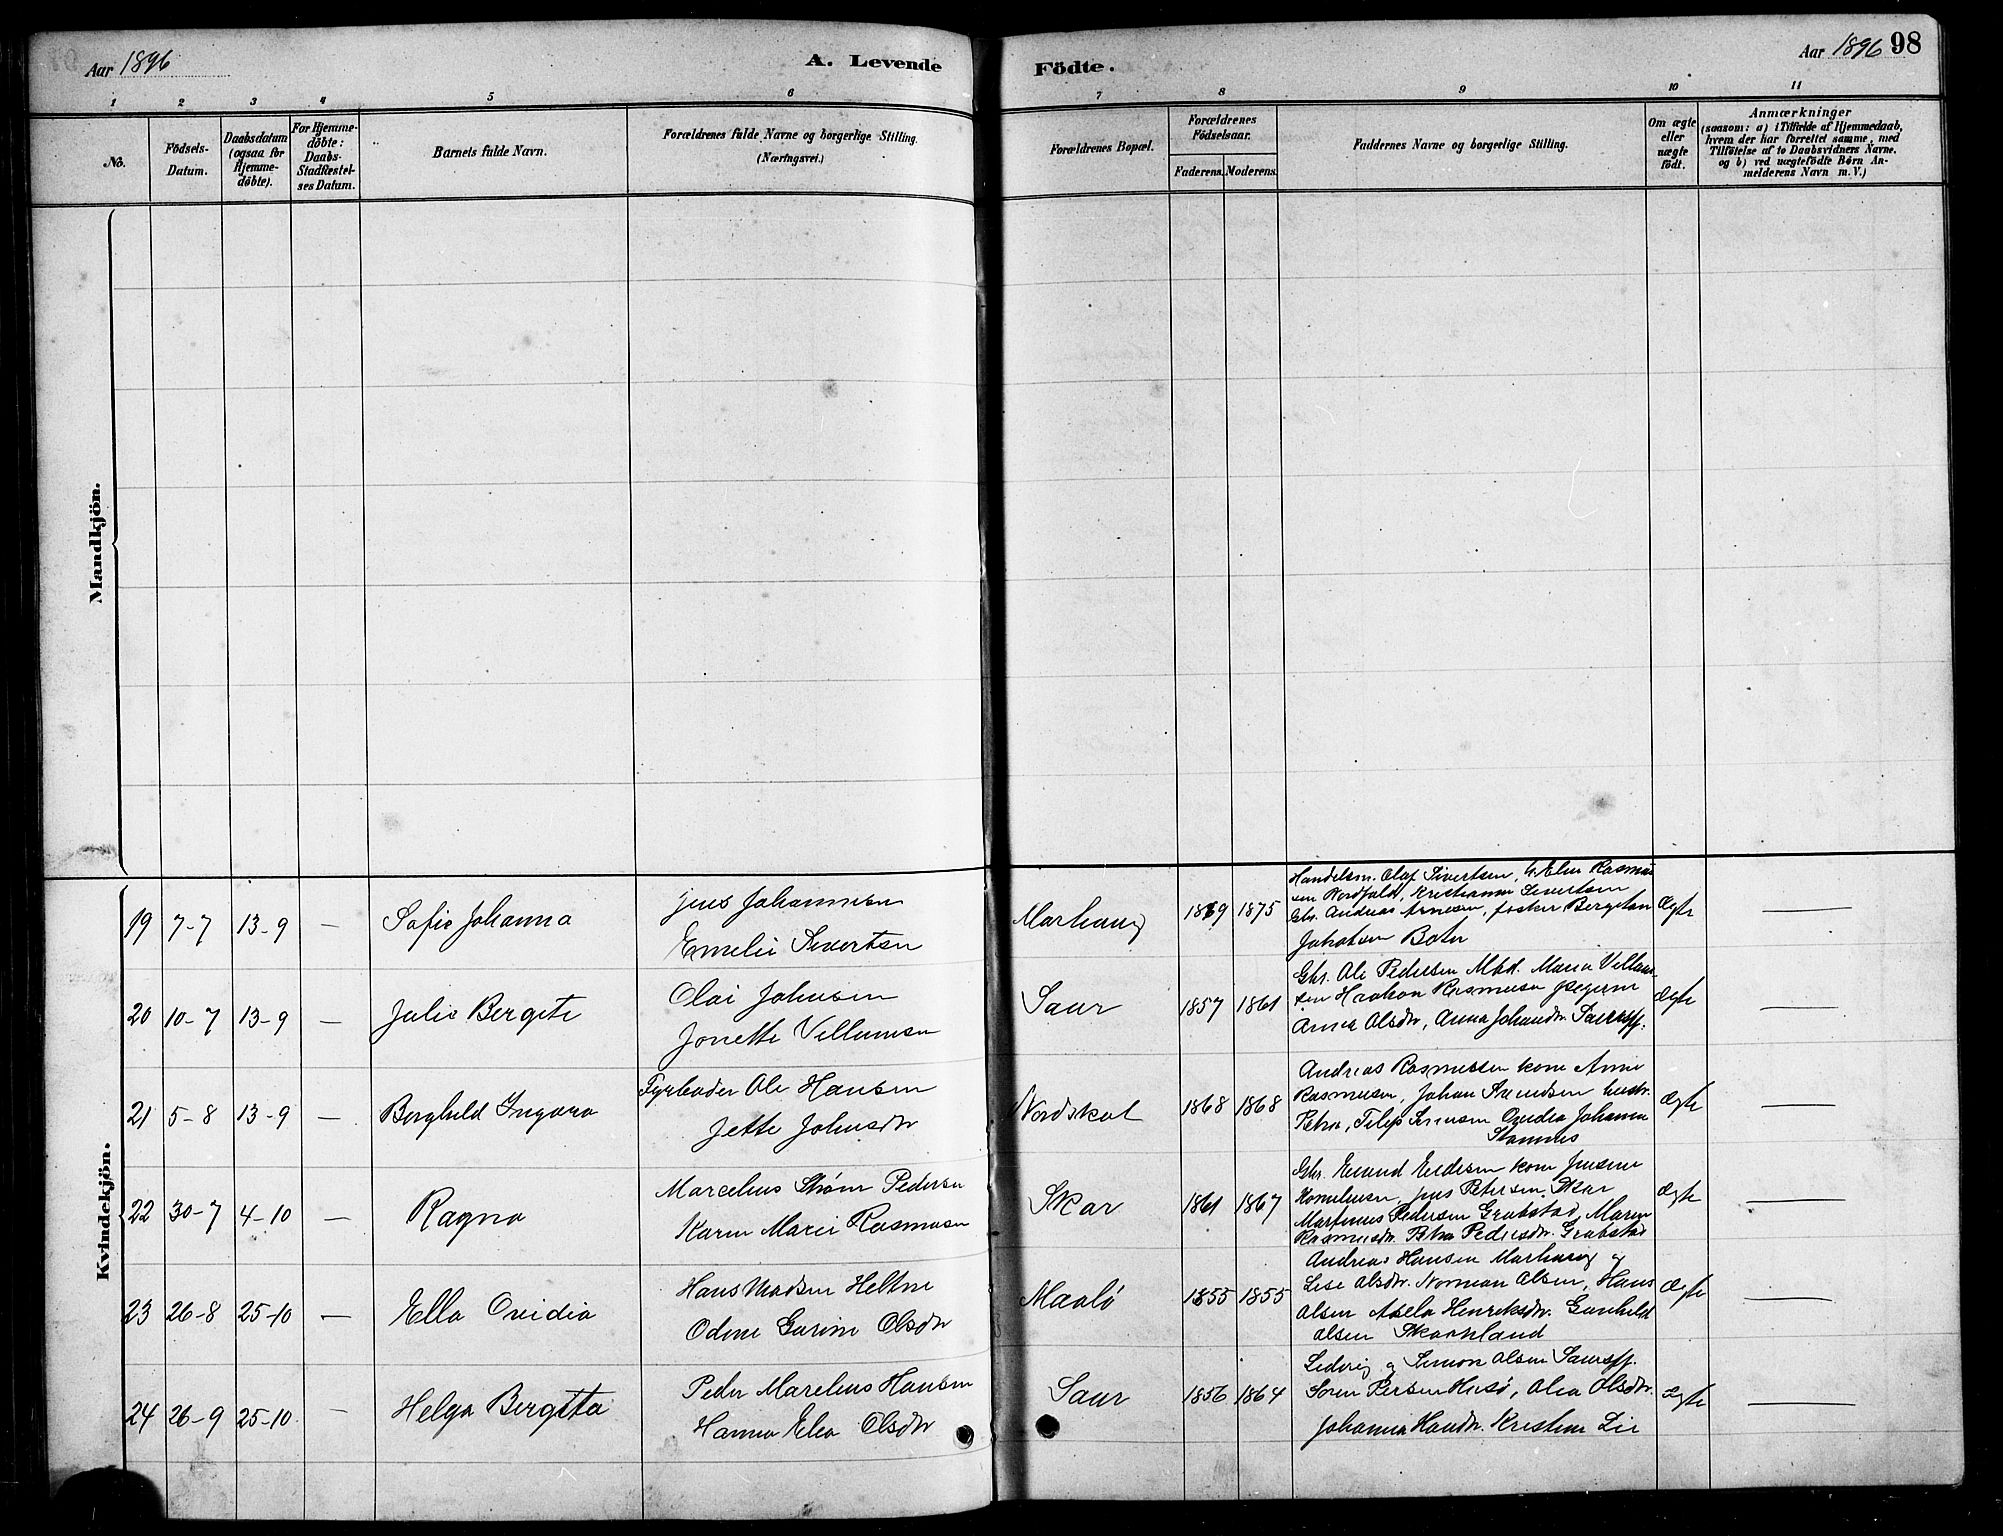 Aar 1896
A. Levende
Födte.
Aar 1896 98
1 2 3 4 5 6 7 8 9 10 11
No.
Födsels-
Datum.
Daabsdatum
(ogsaa for
Hjemme-
döbte).
For Hjemme-
döbte:
Daabs-
Stadfæstel-
ses Datum.
Barnets fulde Navn.
Forældrenes fulde Navne og borgerlige Stilling.
(Næringsvei.)
Forældrenes Bopæl.
Forældrenes
Födselsaar.
Faderens. Moderens.
Faddernes Navne og borgerlige Stilling.
Om ægte
eller
uægte
födt.
Anmærkninger
(saasom: a) i Tilfælde af Hjemmedaab,
hvem der har forrettet samme, med
Tilföielse af to Daabsvidners Navne,
og b) ved uægtefödte Börn An-
melderens Navn m. V.)
Mandkjön.
Kvindekjön.
19 7-7 13-9 — Sofie Johanna
Jens Johannesen
Emelie Sivertsen
Marhaug 1869 1875
Handelsm. Olaf Sivertsen, Elen Rasmus
sen Nordfold, Kristianne Sivertsen
Gbr. Andreas Arnesen, Bergitan
Ægte —
20 10-7 13-9 — Julie Bergite
Olai Johnsen
Jonette Villumsen
Saur 1857 1861
Gbr. Ole Pedersen Maria Villum-
sen Haakon Rasmusen
Anna Olsdtr, Anna Johansdtr.
Ægte —
21 5-8 13-9 — Berghild Ingvara
Fyrbøder Ole Hansen
Jette Johnsdtr
Nordskot 1868 1868
Andreas Rasmussen kone Anne
Rasmusen, Johan Svendsen hustr.
Petra, Filip Sørensen Ovidia Johanna
Stamnes
Ægte —
22 30-7 4-10 — Ragna
Marcelius Strøm Pedersen
Karen Marie Rasmusen
Skar 1861 1867
Gbr. Eduard kone
Kornelius­en, Jens Petersen Skar
Martinus Pedersen Grøbstad, Maren
Rasmusdtr. Petra Pedersdtr. Grøbstad
Ægte —
23 26-8 25-10 — Ella Ovidia
Hans Madsen
Odine Garine Olsdtr
Maalö 1855 1855
Andreas Hansen Marhaug og
Lise Olsdtr. Norman Olsen, Hans
Olsen Henriksdtr. Gunhild
Olsen
Ægte —
24 26-9 25-10 — Helga Bergitta
Peder Marelius Hansen
Hanna Elea Olsdtr
Saur 1856 1864
og Simon Olsen
Sören Persen Husö, Olea Olsdtr.
Johanna Hansdtr. Kristine Lie
Ægte —